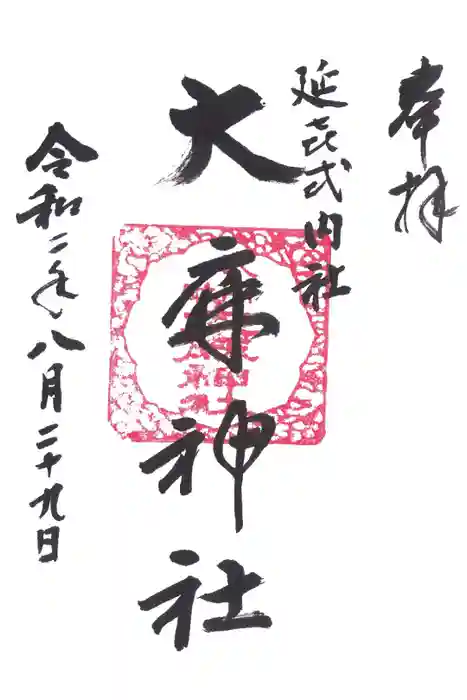 奉拝
延喜式内社
大麻神社
令和二年八月二十九日